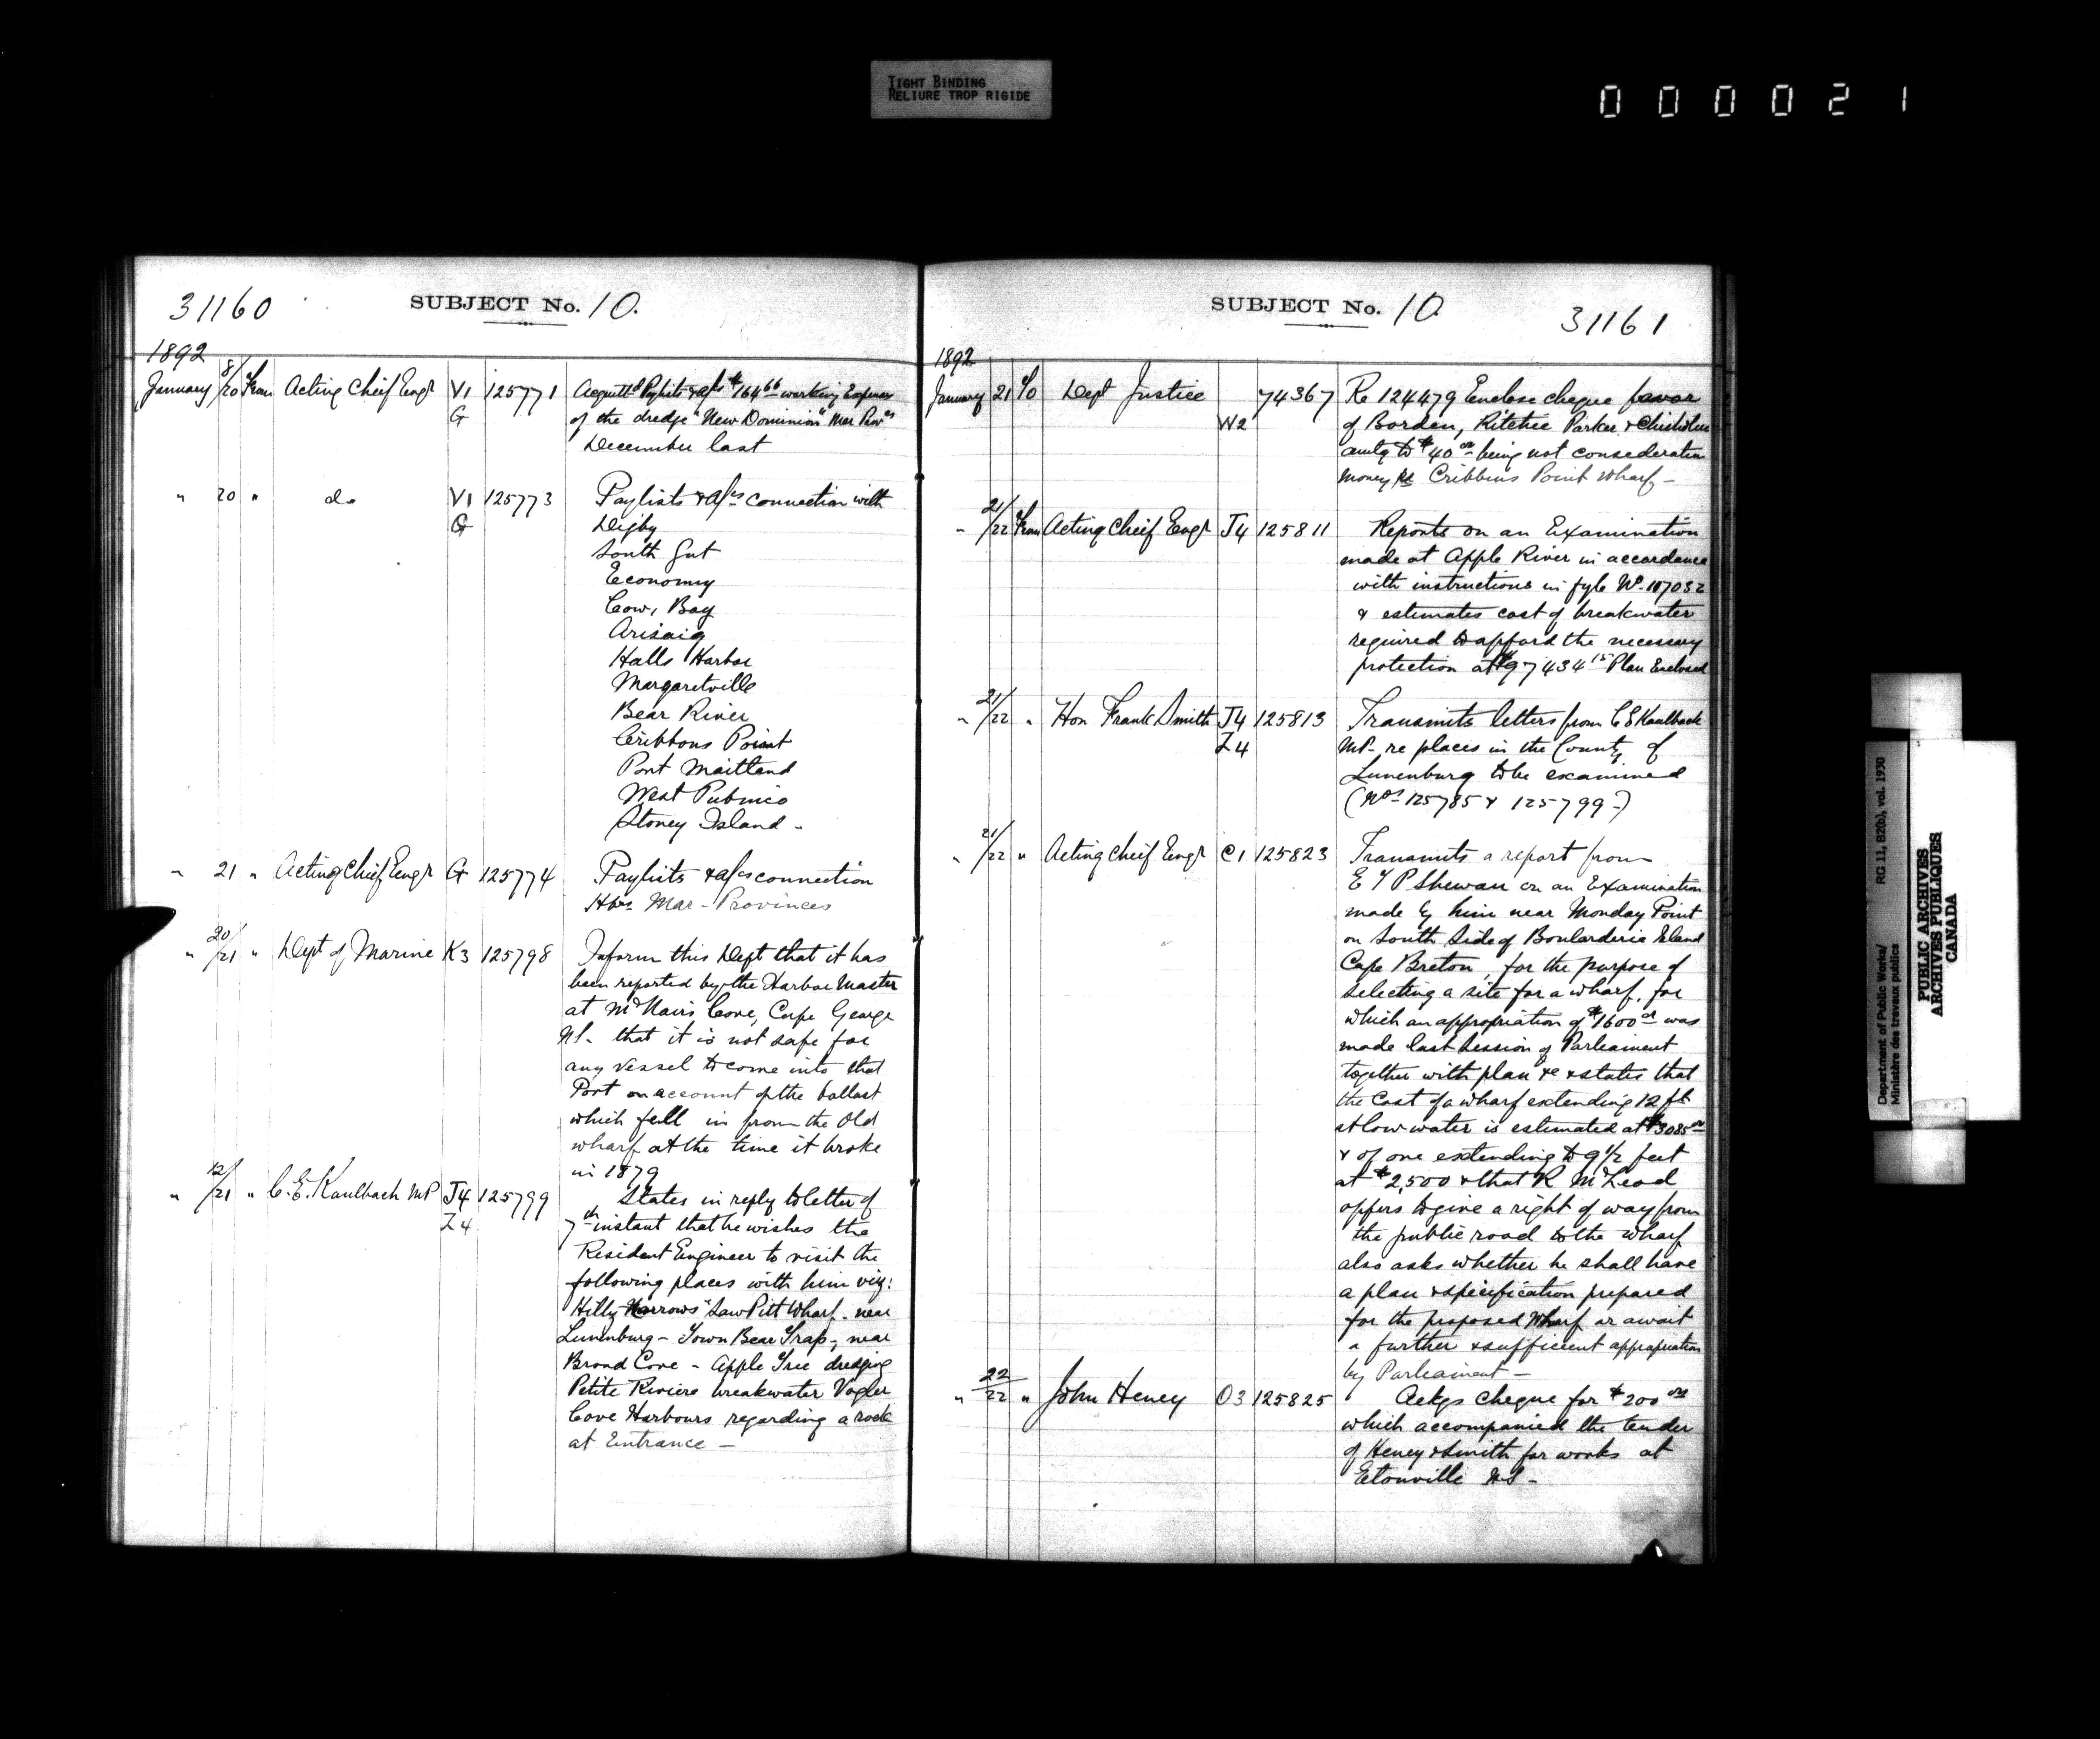 TIGHT BINDING
RELIURE TROP RIGIDE
000021
31160 SUBJECT No. 10.
1892
January 8/20 From Acting Chief Engr V1 G 125771 Acquittd Paylists & a/cs $164 66 working Expenses
of the dredge "New Dominion" Mar Provces
December last
" 20 " do V1 G 125773 Paylists & a/cs connection with
Digby
South Gut
Economy
Cow, Bay
Arisaig
Halls Harbor
Margaretville
Bear River
Cribbons Point
Port Maitland
West Pubnico
Stoney Island -
" 21 " Acting Chief Engr G 125774 Paylists & a/cs connection
Hbrs Mar - Provinces
" 20/21 " Dept of Marine K3 125798 Inform this Dept that it has
been reported by the Harbor Master
at McNairs Cove, Cape George
NS. that it is not safe for
any vessel to come into that
Port on account of the ballast
which fell in from the old
wharf at the time it broke
in 1879
" 12/21 " C. E. Kaulbach MP J4 Z4 125799 States in reply to letter of
7th instant that he wishes the
Resident Engineer to visit the
following places with him viz:
Hilly Narrows "Saw Pitt Wharf - near
Lunenburg - Town Bear Trap -, near
Broad Cove - Apple Tree dredging
Petite Riviere breakwater Vogler
Cove Harbours regarding a rock
at Entrance -
SUBJECT No. 10 31161
1892
January 21 To Dept Justice W2 74367 Re 124479 Enclose cheque favor
of Borden, Ritchie Parker & Chisholm
amtg to $40 00 being not consideration
money Cribbins Point Wharf -
" 21/22 From Acting Cheif Engr J4 125811 Reports on an Examination
made at Apple River in accordance
with instructions in fyle No. 107032
& estimates cost of breakwater
required to afford the necessary
protection at $97434 15 Plan Enclosed
" 21/22 " Hon Frank Smith J4 Z4 125813 Transmits letters from C E Kaulback
MP- re places in the County of
Lunenburg to be examined
(Nos - 125785 & 125799 -)
" 21/22 " Acting Cheif Engr C1 125823 Transmits a report from
E T P Shewan on an Examination
made by him near Monday Point
on South Side of Boularderie Island
Cape Breton, for the purpose of
selecting a site for a wharf, for
which an appropriation of $1600 00 was
made last Session of Parleament
together with plan &c & states that
the cost of a wharf extending 12 ft
at low water is estimated at $3085 00
& of one extending to 9 1/2 feet
at $2,500 & that R McLeod
offers to give a right of way from
the public road to the wharf
also asks whether he shall have
a plan & specification prepared
for the proposed Wharf or await
a further & sufficient appropriation
by Parleament -
" 22/22 " John Heney O3 125825 Ackgs cheque for $200 00
which accompanied the tender
of Heney & Smith for works at
Eatonville NS -
Department of Public Works/
Ministère des travaux publics
RG 11, B2(b), vol. 1930
PUBLIC ARCHIVES
ARCHIVES PUBLIQUES
CANADA